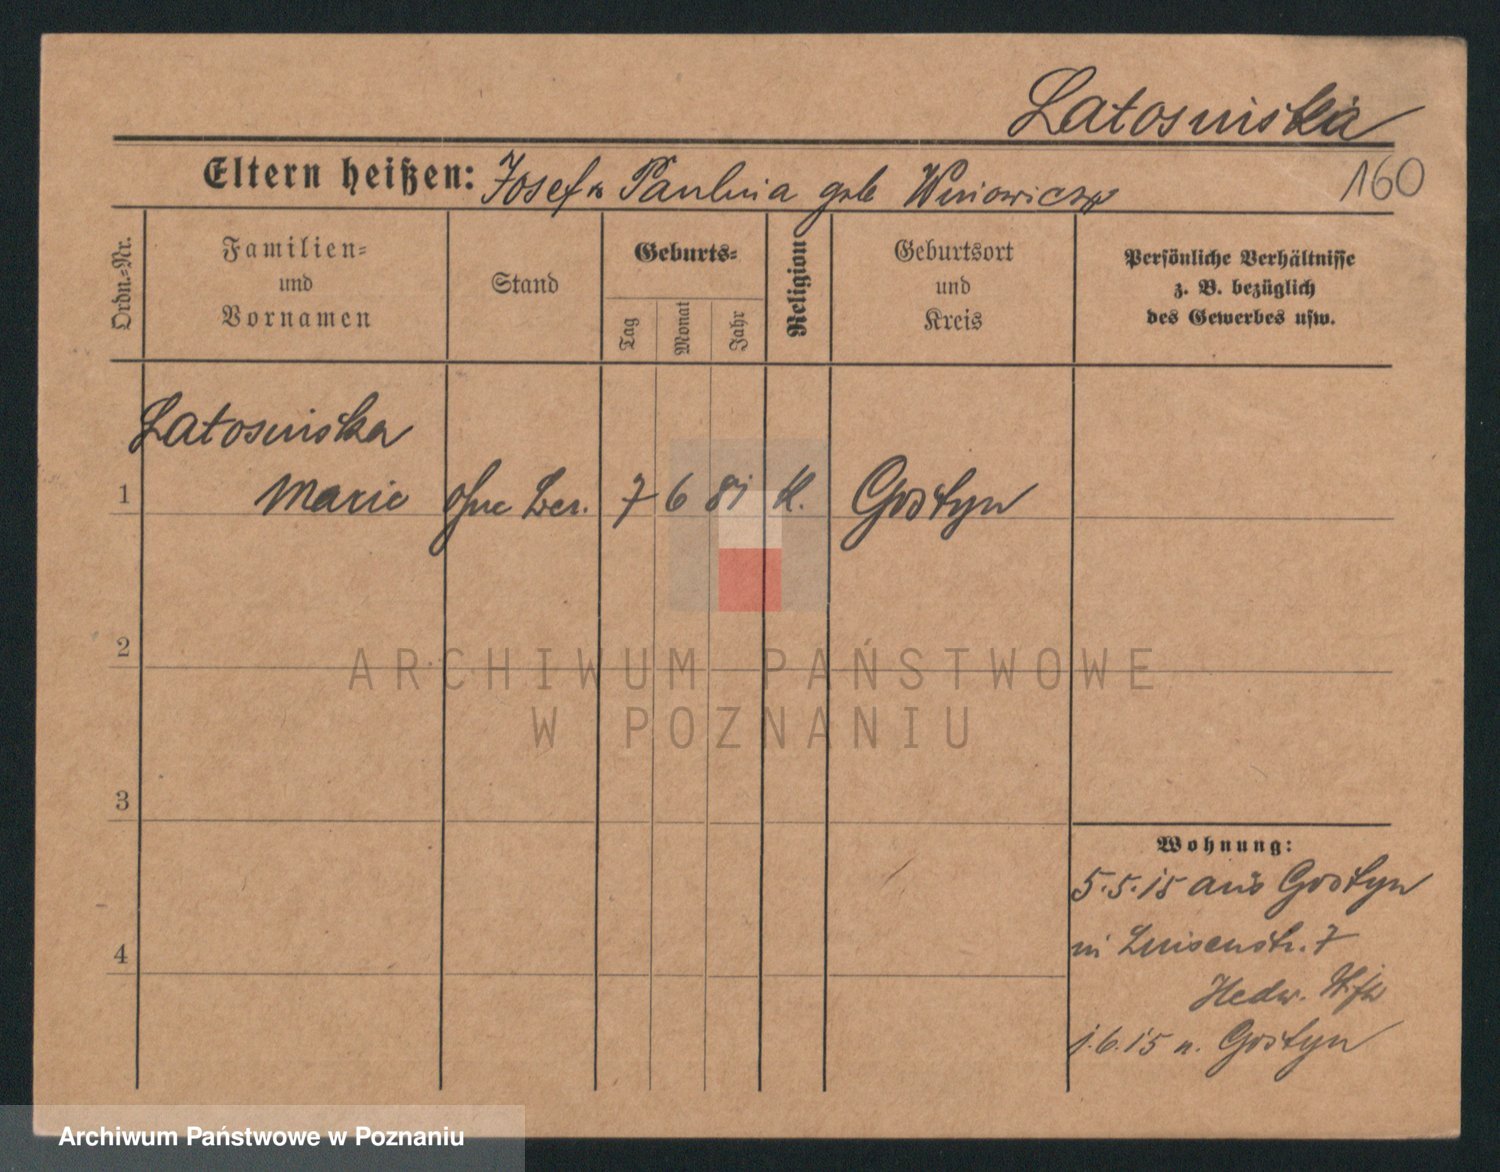 Latosinska
160
Eltern heißen: Josef u Paulina geb Winowicz
Ordn.-Nr.
Familien-
und
Vornamen
Stand
Geburts-
Tag
Monat
Jahr
Religion
Geburtsort
und
Kreis
Persönliche Verhältnisse
z. B. bezüglich
des Gewerbes usw.
Latosinska
1 Marie ohne Ber. 7 6 81 k. Gostyn
2
3
4
Wohnung:
5.5.15 aus Gostyn
in Luisenstr. 7
Hedw.
1.6.15 n. Gostyn
ARCHIWUM PAŃSTWOWE
W POZNANIU
Archiwum Państwowe w Poznaniu